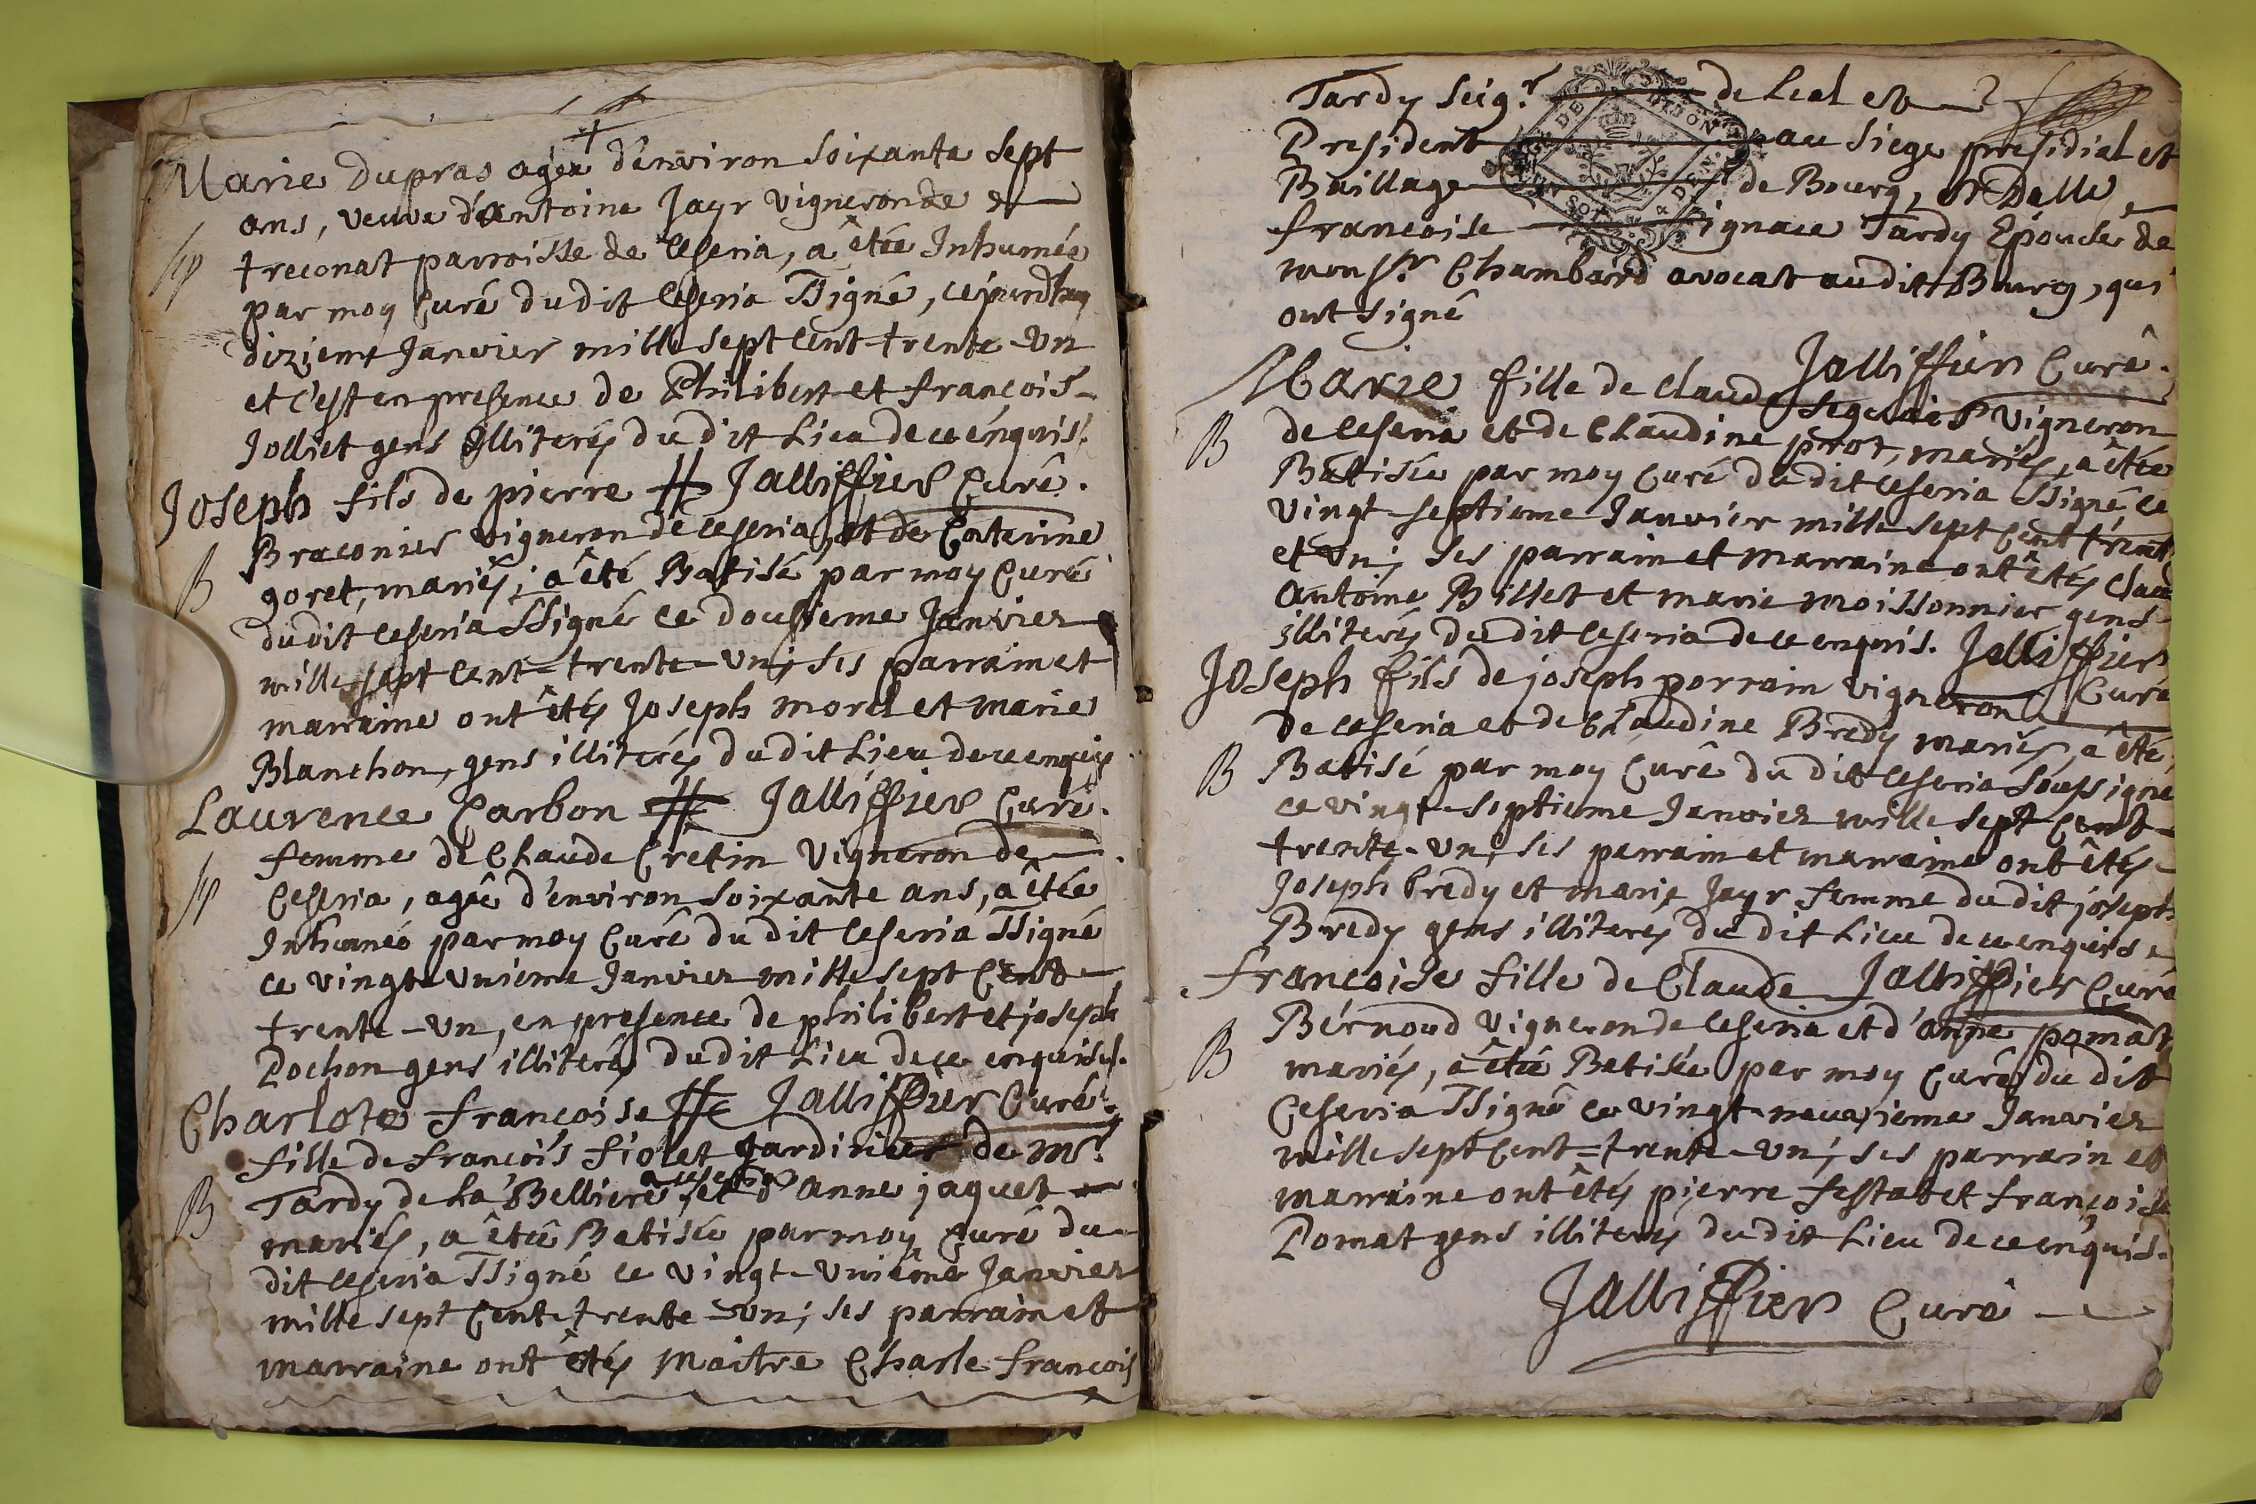 Marie Dupras agée d'environ soixante sept
ans, veuve d'antoine Jayr vigneron de
Sep
treconat parroisse de Ceseria, a êtée Inhumée
par moy Curé du dit Ceseria ssigné, ce jourdhuy
dizieme Janvier mille sept cent trente-un
et c'est en presence de Philibert et françois
Jolliet gens illiterés du dit Lieu de ce enquis.
Joseph fils de pierre # Jalliffier Curê.
Braconier vigneron de Ceseria, et de Caterine
B
goret, mariés; a êté Batisé par moy Curé
du dit Ceseria ssigné ce dousieme Janvier
mille sept cent=trente-un; ses parrain et
marraine ont êtés Joseph morel et marie
Blanchon, gens illiterés du dit Lieu de ce enquis
Laurence Carbon # Jalliffier Curé.
femme de Claude Cretin Vigneron de
Sep
Ceseria, agée d'environ soixante ans, a êtée
Inhumée par moy Curê du dit Ceseria ssigné
ce vingt unieme Janvier mille sept Cent
trente-un, en presence de philibert et joseph
Pochon gens illiterés du dit Lieu de ce enquis.
Charlote françoise # Jalliffier Curé.
fille de françois fiolet Jardinier de Mr.
a Ceseria
B
Tardy de La Belliere, et d'anne jaquet
mariés, a êtée Batisée par moy Curê du
dit Ceseria ssigné ce vingt-unieme Janvier
mille sept Cent trente-un; ses parrain et
marraine ont êtés Maitre Charle françois
Tardy seigr. de Leal et
President au siege presidial et
Baillage de Bourg, et Delle
françoise ignace Tardy Epouse de
monsr. Chambard avocat au dit Bourg, qui
ont signê
Jalliffier Curê.
Marie fille de Claude vigneron
B
de Ceseria et de Claudine mariés, a êtée
Batisée par moy Curé du dit Ceseria ssigné ce
vingt-septieme Janvier mille sept Cent trente
et un; ses parrain et marraine ont êtés
antoine Billet et marie moissonnier gens
illiterés du dit Ceseria de ce enquis. Jalliffier
Curé
Joseph fils de joseph porrain vigneron
de Ceseria et de Claudine Bredy mariés, a êté
B
Batisé par moy Curê du dit Ceseria soussigné
ce vingt-septieme Janvier mille sept Cent
trente-un; ses parrain et marraine ont êtés
Joseph bredy et marie Jayr femme du dit joseph
Bredy gens illiterés du dit Lieu de ce enquis
françoise fille de Claude Jalliffier Curé
Bernoud vigneron de Ceseria et d'anne pomat
B
mariés, a êtée Batisée par moy Curê du dit
Ceseria ssigné ce vingt-neuvieme Janvier
mille sept Cent=trente-un; ses parrain et
marraine ont êtés pierre festat et françoise
Pomat gens illiterés du dit Lieu de ce enquis.
Jalliffier Curé